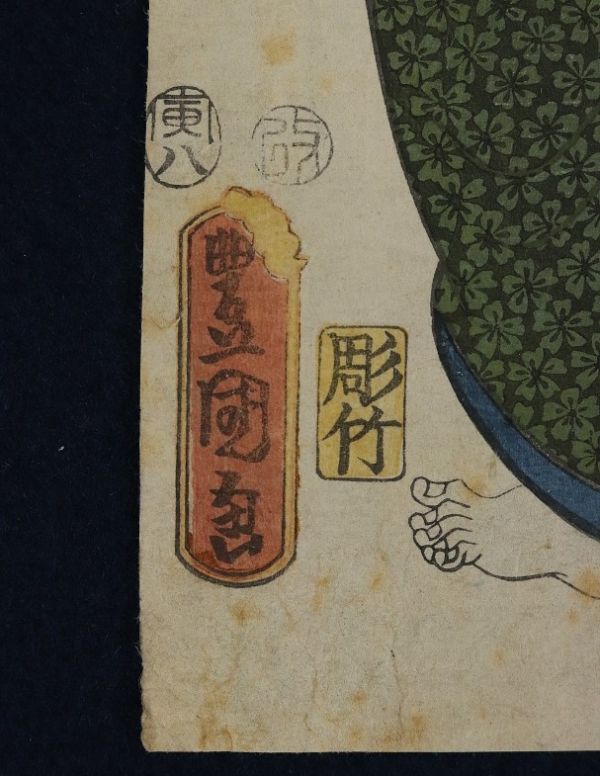 寅八
改
豊國画
彫竹